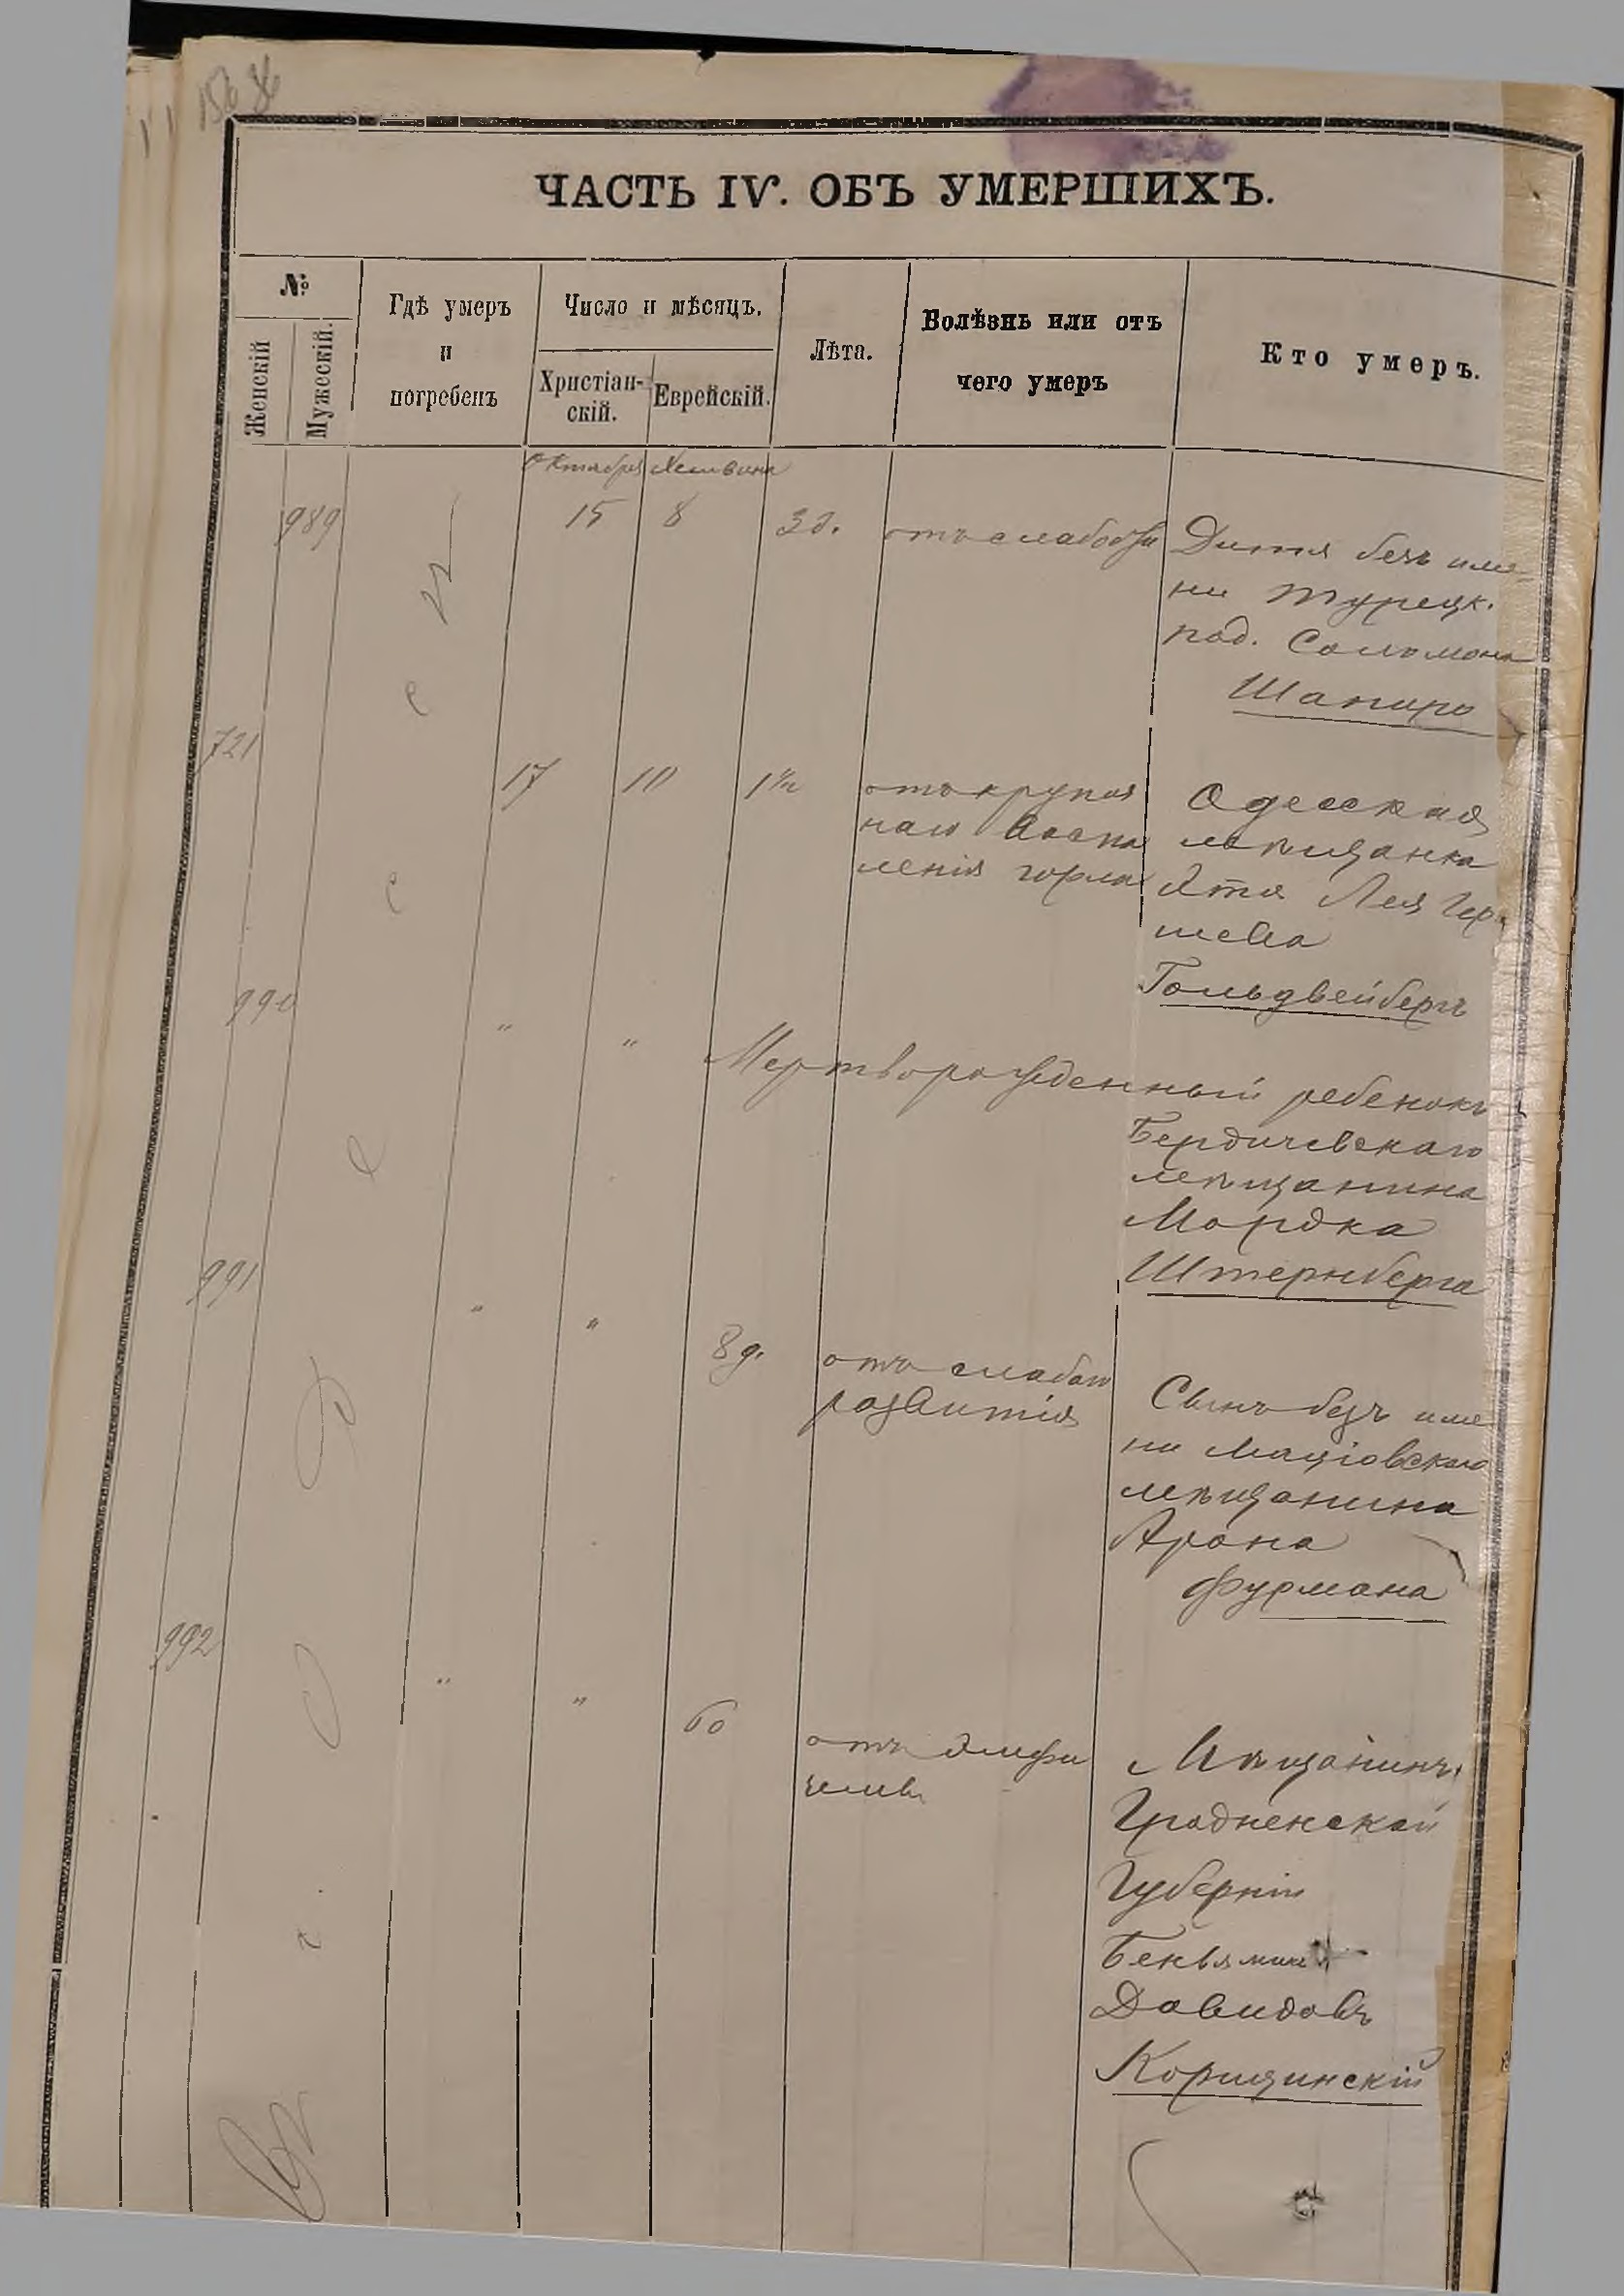 ЧАСТЬ IV. ОБЪ УМЕРШИХЪ.
№
Женскій
Мужескій.
Гдѣ умеръ
и
погребенъ
Число и мѣсяцъ.
Христіан-
скій.
Еврейскій.
Лѣта.
Болѣзнь или отъ
чего умеръ
Кто умеръ.
Октября Хешвина
989 15 8 3д. отъ слабости Дитя безъ име-
ни Турецк.
под. Соломона
Шапиро
721 17 10 1½ отъ крупоз Одесская
наго воспа мѣщанка
ленія горла Этя Лея Гер
шева
Гольдвейберъ
990 " " Мертворожденный ребенокъ
Бердичевскаго
мѣщанина
Мордка
Штернберга
991 " " 8д. отъ слабаго
развитія
Сынъ безъ име
ни Маціовскаго
мѣщанина
Арона
Фурмана
992 " " 60 отъ эмфи
земы
Мѣщанинъ
Гродненской
Губерніи
Беньямин
Давидовъ
Корицинскій
Въ Одессѣ